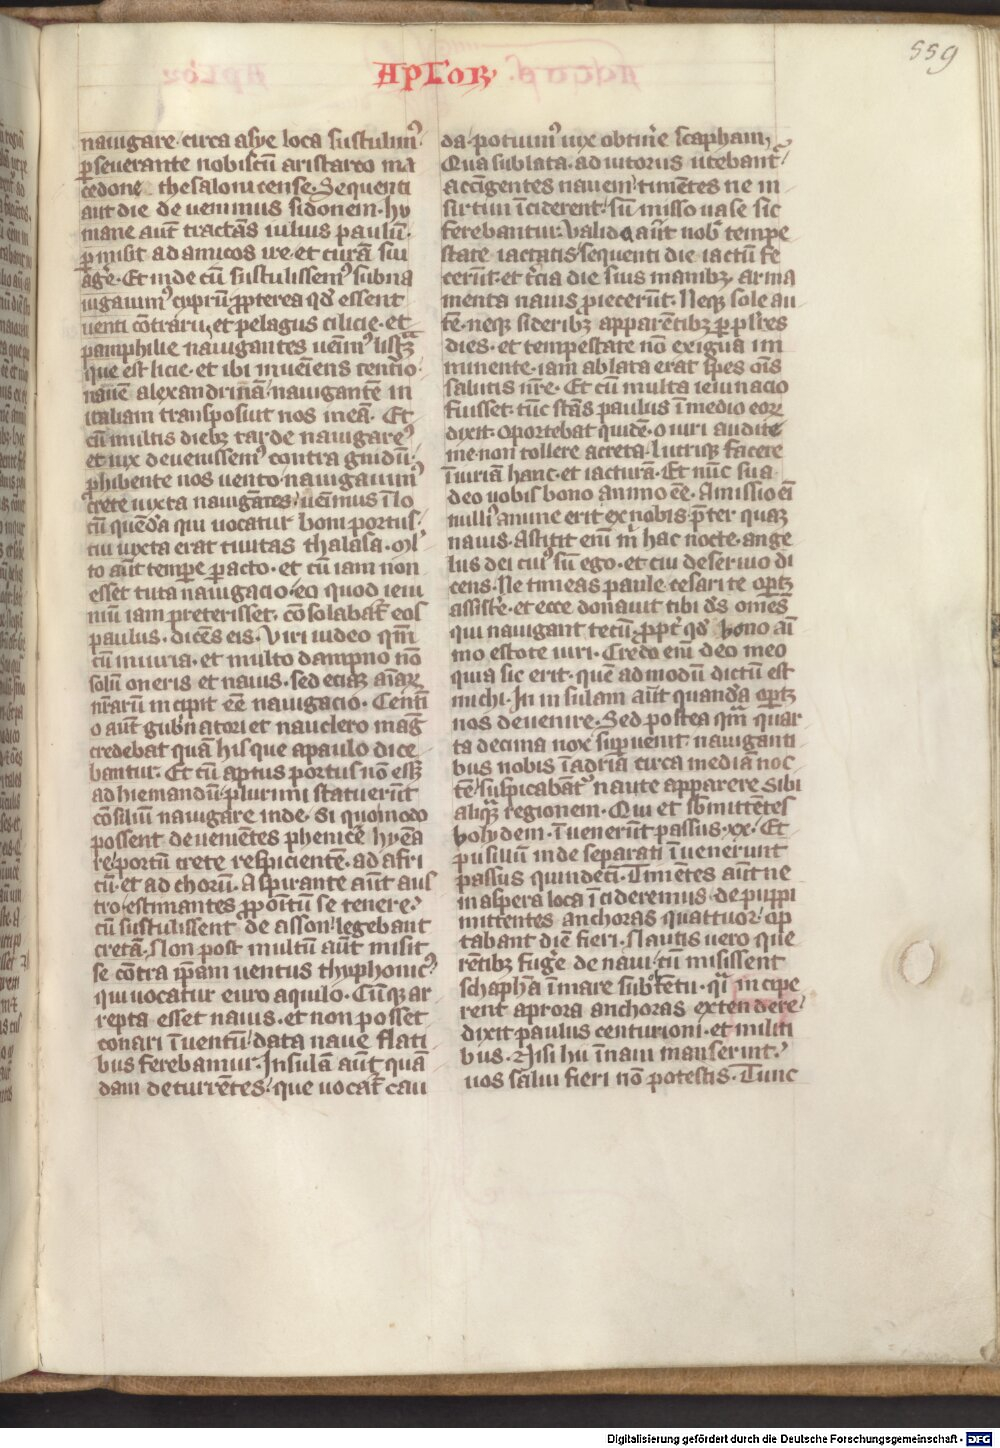 559
Apłoꝝ
nauigare circa asye loca sustulimꝰ
ꝑseuerante nobiscū aristarco ma
cedone thesalonicense. Sequenti
aut die deuenimus sidonem. hu
mane aūt tractās iulius paulū.
ꝑmisit ad amicos ire et curā sui
agẽ. Et inde cū sustulissemꝰ subna
uigauimꝰ cyprū ꝓpterea qđ essent
uenti cōtrarii. et pelagus cilicie. et
pamphilie nauigantes uēimꝰ listrā
que est licie. et ibi inueniens centio
nauē alexandrinā nauigantē in
italiam transposuit nos in eā. Et
cū multis diebꝫ tarde nauigareꝰ
et uix deuenissemꝰ contra gnidū.
ꝓhibente nos uento. nauigauimꝰ
crete iuxta nauigātes. uēimus ī lo
cū quēdā qui uocatur boni portus.
cui iuxta erat ciuitas thalasa. Ml̕
to aūt temꝑe ꝑacto. et cū iam non
esset tuta nauigacio. eo quod ieiu
niū iam preterisset. cōsolabat̄ eos
paulus. dicēs eis. Viri uideo qm̄
cū iniuria. et multo dampno nō
solū oneris et nauis. sed eciā aīaꝝ
nr̄arum incipit eē nauigacio. Centī
o aūt gubnatori et nauclero maḡ
credebat quā his que a paulo dice
bantur. Et cū aptus portus nō essꝫ
ad hiemandū. plurimi statuerūt
cōsiliū nauigare inde. si quomodo
possent deuenientes phenicē hyēa
re. portū crete respicientē. ad afri
cū. et ad chorū. Aspirante aūt aus
tro. estimantes ꝓpoitū se tenere.
cū sustulissent de asson. legebant
cretā. Non post multū aūt misit
se cōtra ip̄am uentus thyphonicꝰ
qui uocatur euro aquilo. Cūqꝫ ar
repta esset nauis. et non posset
conari ī uentū. data naue flati
bus ferebamur. Insulā aūt quā
dam decurrētes. que uocat̄ cau
da. potuimꝰ uix obtinẽ scapham.
Qua sublata. adiutoriis utebant̄
accingentes nauem. timētes ne in
sirtim īciderent. sūmisso uase sic
ferebantur. Valida aūt nob̄ tempe
state iactatis. sequenti die iactū fe
cerūt. et t̄cia die suis manibꝫ arma
menta nauis ꝓiecerūt. Neqꝫ sole au
tē. neqꝫ sideribꝫ apparētibꝫ ꝑ plẽs
dies. et tempestate nō exigua im
minente. iam ablata erat spes oīs
salutis nr̄e. Et cū multa ieiunacio
fuisset. tūc stās paulus ī medio eoꝝ
dixit. Oportebat quidē. o uiri audite
me. non tollere a creta. lucriqꝫ facere
īiuriā hanc. et iacturā. Et nūc sua
deo uobis bono animo eē. Amissio eī
nulliꝰ anime erit ex nobis. p̄ter quāꝫ
nauis. Astitit enī m̄ hac nocte. ange
lus dei cuiꝰ sū ego. et cui deseruio di
cens. Ne timeas paule. cesari te oꝑtꝫ
assistẽ. et ecce donauit tibi d̄s omēs
qui nauigant tecū. ꝓpt̄ qđ bono aī
mo estote uiri. Credo enī deo meo
quia sic erit. quē admodū dictū est
michi. In insulam aūt quandā oꝑtꝫ
nos deuenire. Sed postea qm̄ quar
ta decima nox suꝑuenit. nauiganti
bus nobis ī adria. circa mediā noc
tē. suspicabātr̄ naute apparere sibi
aliqā regionem. Qui et sb̄mittētes
bolydem. īuenerūt passus .xx. Et
pusillū inde separati īuenerunt
passus quindecī. Timētes aūt ne
in aspera loca īcideremus. de puppi
mittentes anchoras quattuor. op
tabant diē fieri. Nautis uero que
rētibꝫ fugẽ de naui. cū misissent
schaphā ī mare sub obtētu. qi incipe
rent a prora anchoras extendere.
dixit paulus centurioni. et militi
bus. Nisi hii ī naui manserint.
uos salui fieri nō potestis. Tunc
Digitalisierung gefördert durch die Deutsche Forschungsgemeinschaft - DFG